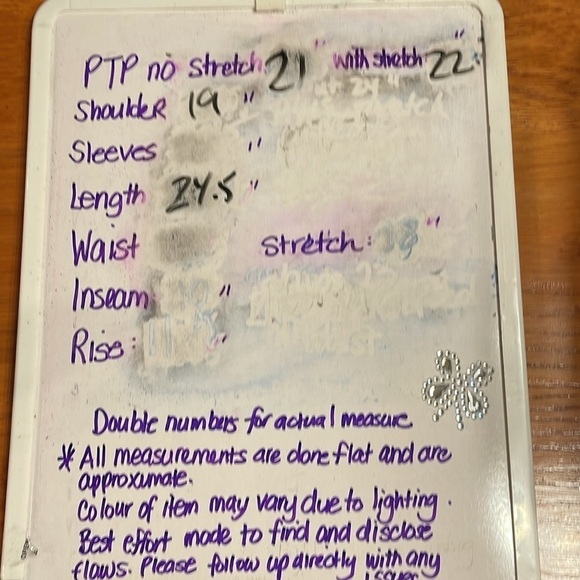 PTP no stretch 21" with stretch 22"
Shoulder 19"
Sleeves "
Length 24.5"
Waist Stretch: "
Inseam "
Rise: "
Double numbers for actual measure
* All measurements are done flat and are
approximate.
Colour of item may vary due to lighting.
Best effort made to find and disclose
flaws. Please follow up directly with any